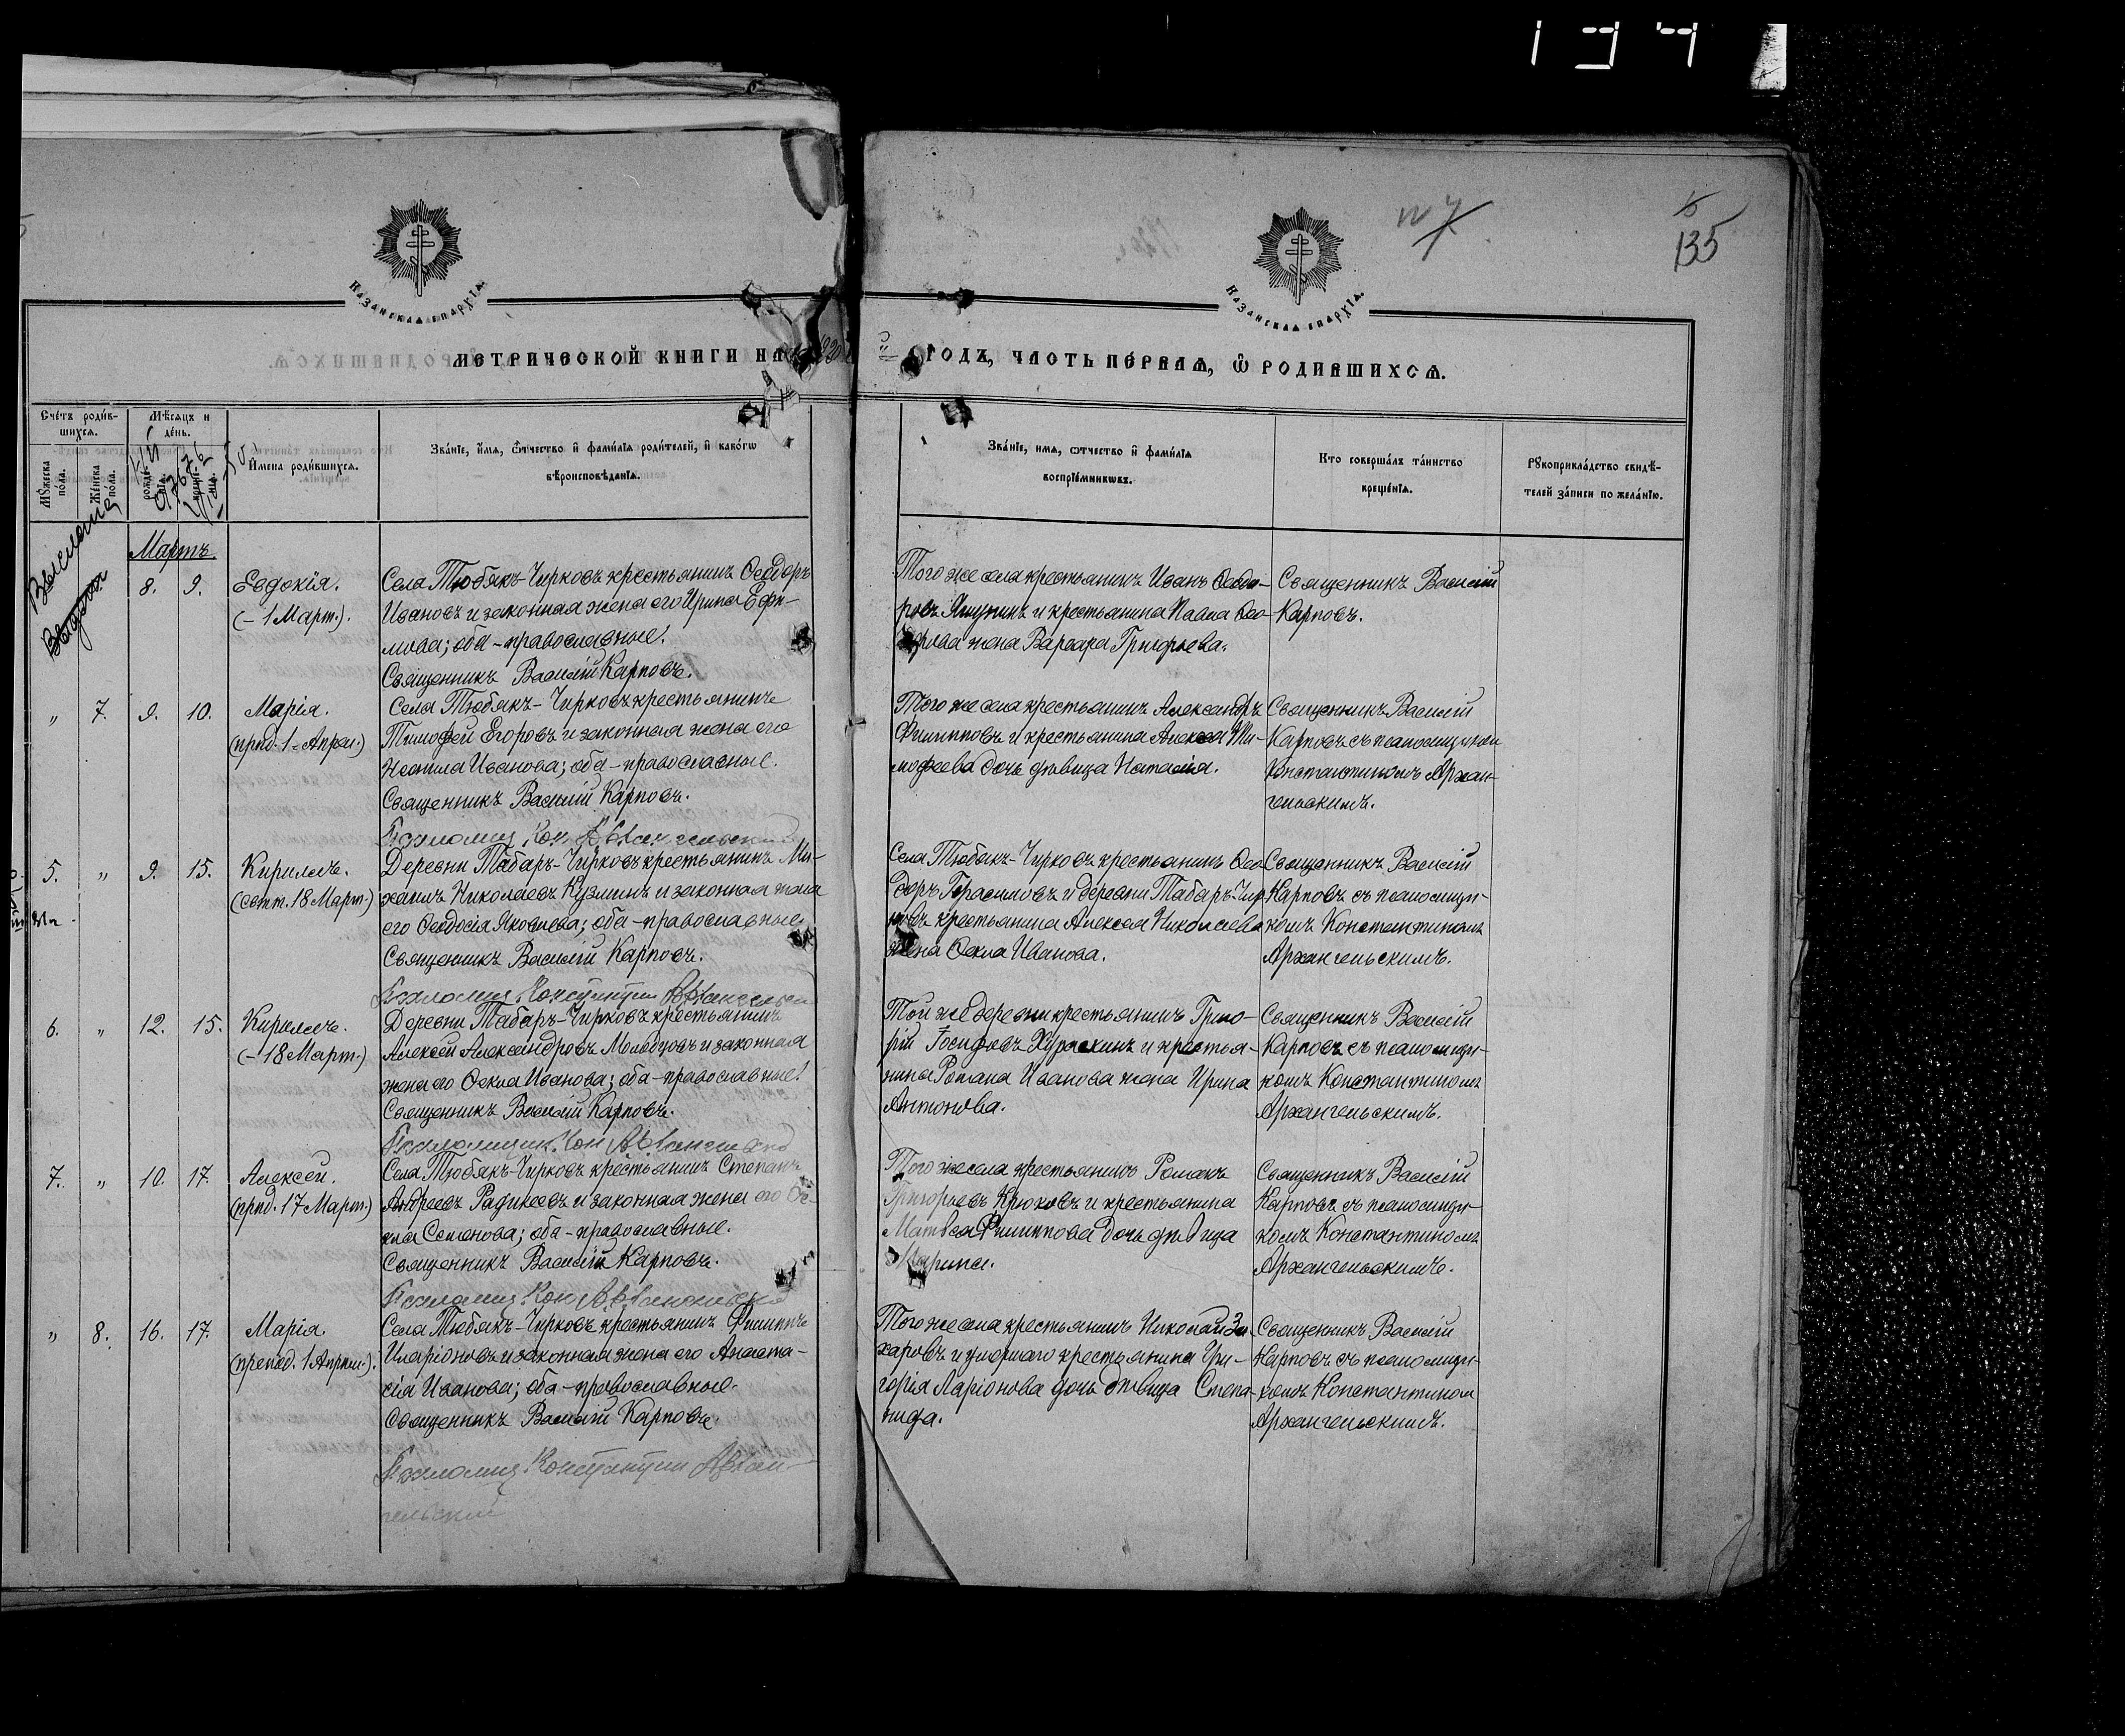 134
№ 7
15
135
КАЗАНСКАѦ ЕПАРХІѦ.
КАЗАНСКАѦ ЕПАРХІѦ.
МЕТРИЧЕСКОЙ КНИГИ НА
ГОДЪ, ЧАСТЬ ПЕ́РВАѦ, Ѽ РОДИВШИХСѦ.
Сче́тъ роди́в-
шихся.
Мѣ́сяцъ и
де́нь.
Мꙋ́жеска
по́ла.
Же́нска
по́ла.
рожде́-
нїя.
креще́-
нїя.
И҆мена роди́вшихся.
Зва́нїе, и҆́мя, ѻ҆́тчество и҆ фами́лїя роди́телей, и҆ како́гѡ
вѣроисповѣ́данїя.
Зва́нїе, имя, ѻтчество и҆ фами́лїя
воспрїе́мникѡвъ.
Кто соверша́лъ та́инство
креще́нїя.
Рꙋкоприкла́дство свидѣ́-
телей за́писи по жела́нїю.
Мартъ.
8. 9. Евдокія.
(– 1 Март.).
Села Тюбякъ-Чирковъ крестьянинъ Ѳеодоръ
Ивановъ и законная жена его Ирина Ефи-
мова; оба – православные.
Священникъ Василій Карповъ.
Того же села крестьянинъ Иванъ Ѳеодо-
ровъ и крестьянина Павла Ѳео-
дорова жена Варвара Григорьева.
Священникъ Василій
Карповъ.
" 7. 9. 10. Марія.
(прпд. 1 Апрел.)
Села Тюбякъ-Чирковъ крестьянинъ
Тимофей Егоровъ и законная жена его
Неонила Иванова; оба – православные.
Священникъ Василій Карповъ.
Псаломщ. Кон. Архангельскій
Того же села крестьянинъ Александръ
Филипповъ и крестьянина Алексея Ти-
мофеева дочь дѣвица Наталія.
Священникъ Василій
Карповъ съ псаломщикомъ
Константиномъ Архан-
гельскимъ.
5. " 9. 15. Кириллъ.
(свт. 18 Март.)
Деревни Табаръ-Чирковъ крестьянинъ Ми-
хаилъ Николаевъ Кузминъ и законная жена
его Ѳеодосія Яковлева; оба – православные.
Священникъ Василій Карповъ.
Псаломщ. Константин Архангельскій
Села Тюбякъ-Чирковъ крестьянинъ Ѳео-
доръ Герасимовъ и деревни Табаръ-Чир-
ковъ крестьянина Алексея Николаева
жена Ѳекла Иванова.
Священникъ Василій
Карповъ съ псаломщи-
комъ Константиномъ
Архангельскимъ.
6. " 12. 15. Кириллъ.
(– 18 Март.)
Деревни Табаръ-Чирковъ крестьянинъ
Алексей Александровъ Молодцовъ и законная
жена его Ѳекла Иванова; оба – православные.
Священникъ Василій Карповъ.
Псаломщик. Кон. Архангельскій
Той же деревни крестьянинъ Григо-
рій Іосифовъ и крестья-
нина Романа Иванова жена Ирина
Антонова.
Священникъ Василій
Карповъ съ псаломщи-
комъ Константиномъ
Архангельскимъ.
7. " 10. 17. Алексей.
(прпд. 17 Март.)
Села Тюбякъ-Чирковъ крестьянинъ Степанъ
Андреевъ и законная жена его Ѳе-
кла Семенова; оба – православные.
Священникъ Василій Карповъ.
Псаломщ. Кон. Архангельскій
Того же села крестьянинъ Романъ
Григорьевъ Крюковъ и крестьянина
Матвея Филиппова дочь дѣвица
Марина.
Священникъ Василій
Карповъ съ псаломщи-
комъ Константиномъ
Архангельскимъ.
" 8. 16. 17. Марія.
(препод. 1 Апрел.).
Села Тюбякъ-Чирковъ крестьянинъ Филиппъ
Иларіоновъ и законная жена его Анаста-
сія Иванова; оба – православные.
Священникъ Василій Карповъ.
Псаломщ. Константин Архан-
гельскій
Того же села крестьянинъ Николай За-
харовъ и крестьянина Гри-
горія Ларіонова дочь дѣвица Степа-
нида.
Священникъ Василій
Карповъ съ псаломщи-
комъ Константиномъ
Архангельскимъ.